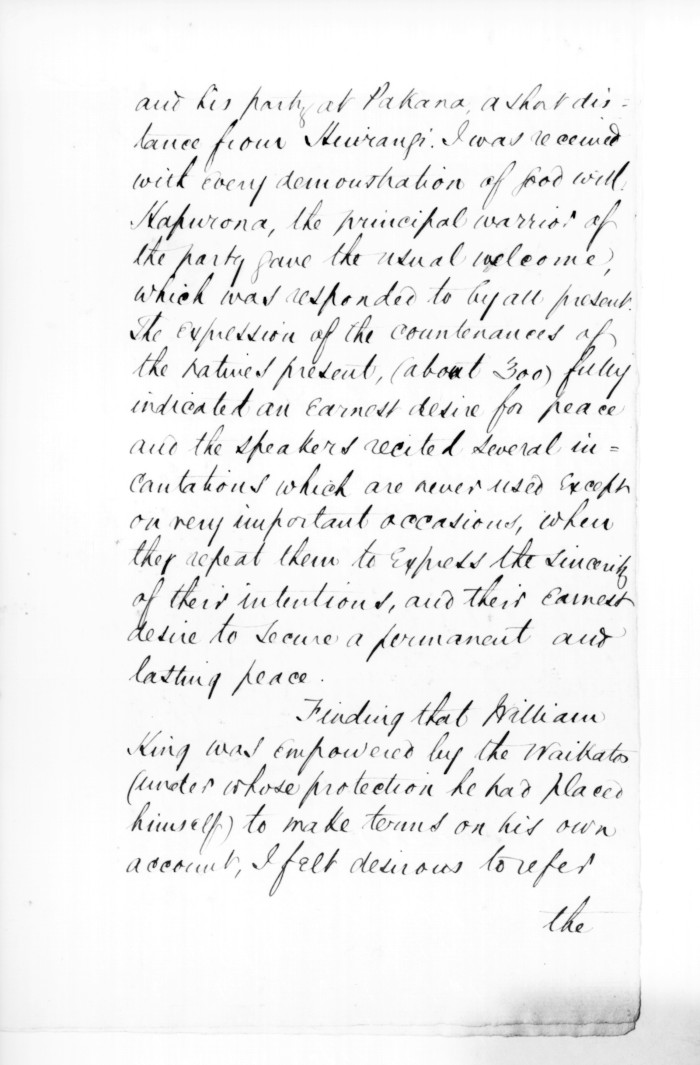 and his party at Pakana, a short dis=
tance from Huirangi. I was received
with every demonstration of good will.
Hapurona, the principal warrior of
the party gave the usual welcome,
which was responded to by all present.
The expression of the countenances of
the natives present, (about 300) fully
indicated an earnest desire for peace
and the speakers recited several in=
cantations which are never used except
on very important occasions, when
they repeat them to express the sincerity
of their intentions, and their earnest
desire to secure a permanent and
lasting peace.
Finding that William
King was empowered by the Waikatos
(under whose protection he had placed
himself) to make terms on his own
account, I felt desirous to refer
the